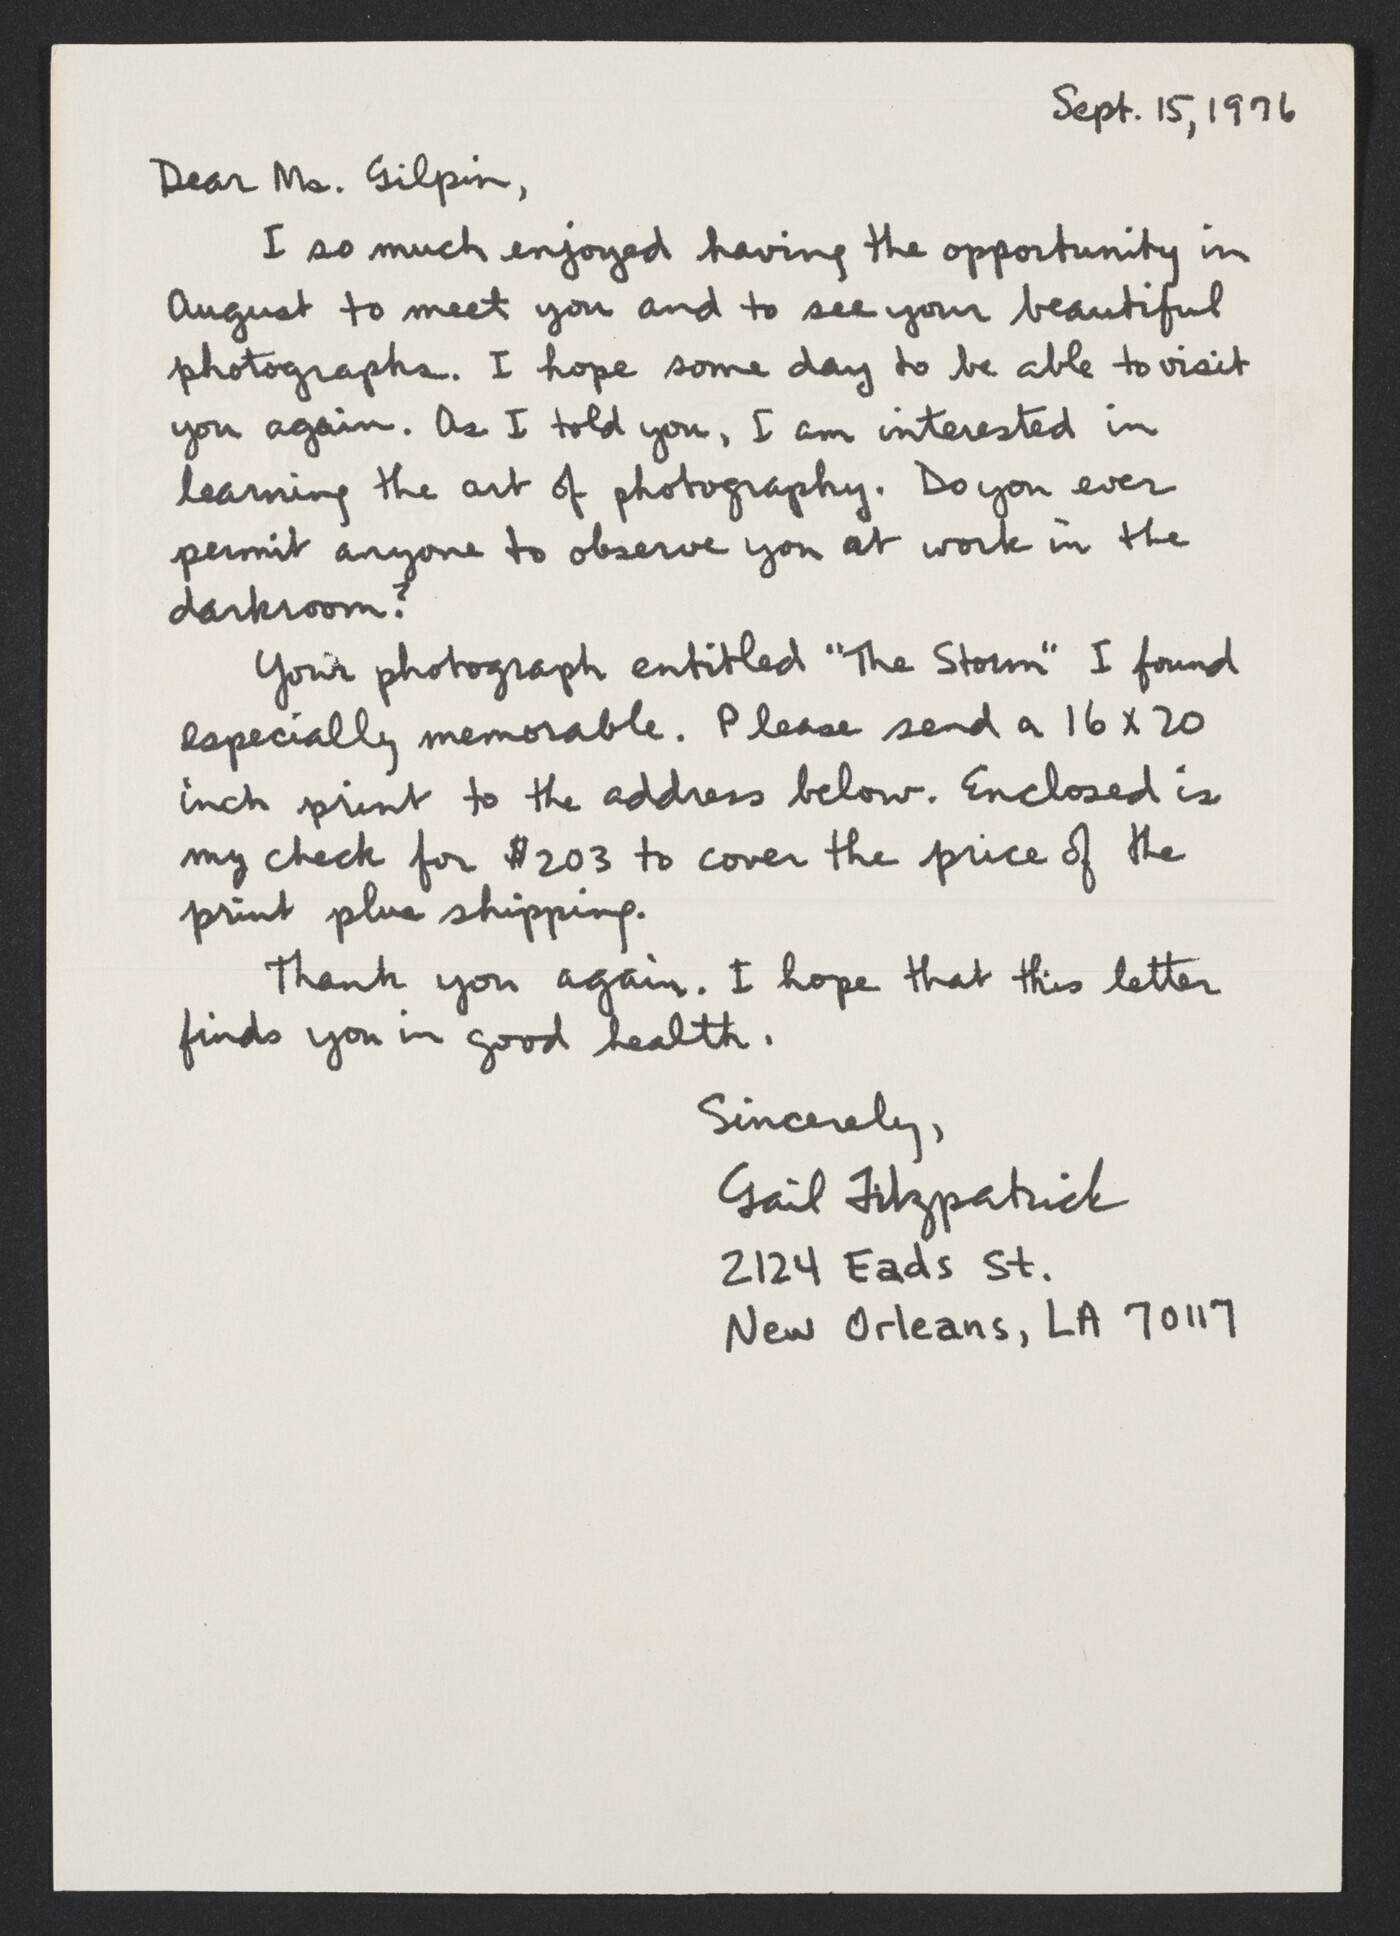 Sept. 15, 1976
Dear Ms. Gilpin,
I so much enjoyed having the opportunity in
August to meet you and to see your beautiful
photographs. I hope some day to be able to visit
you again. As I told you, I am interested in
learning the art of photography. Do you ever
permit anyone to observe you at work in the
darkroom?
Your photograph entitled "The Storm" I found
especially memorable. Please send a 16 x 20
inch print to the address below. Enclosed is
my check for $203 to cover the price of the
print plus shipping.
Thank you again. I hope that this letter
finds you in good health.
Sincerely,
Gail Fitzpatrick
2124 Eads St.
New Orleans, LA 70117